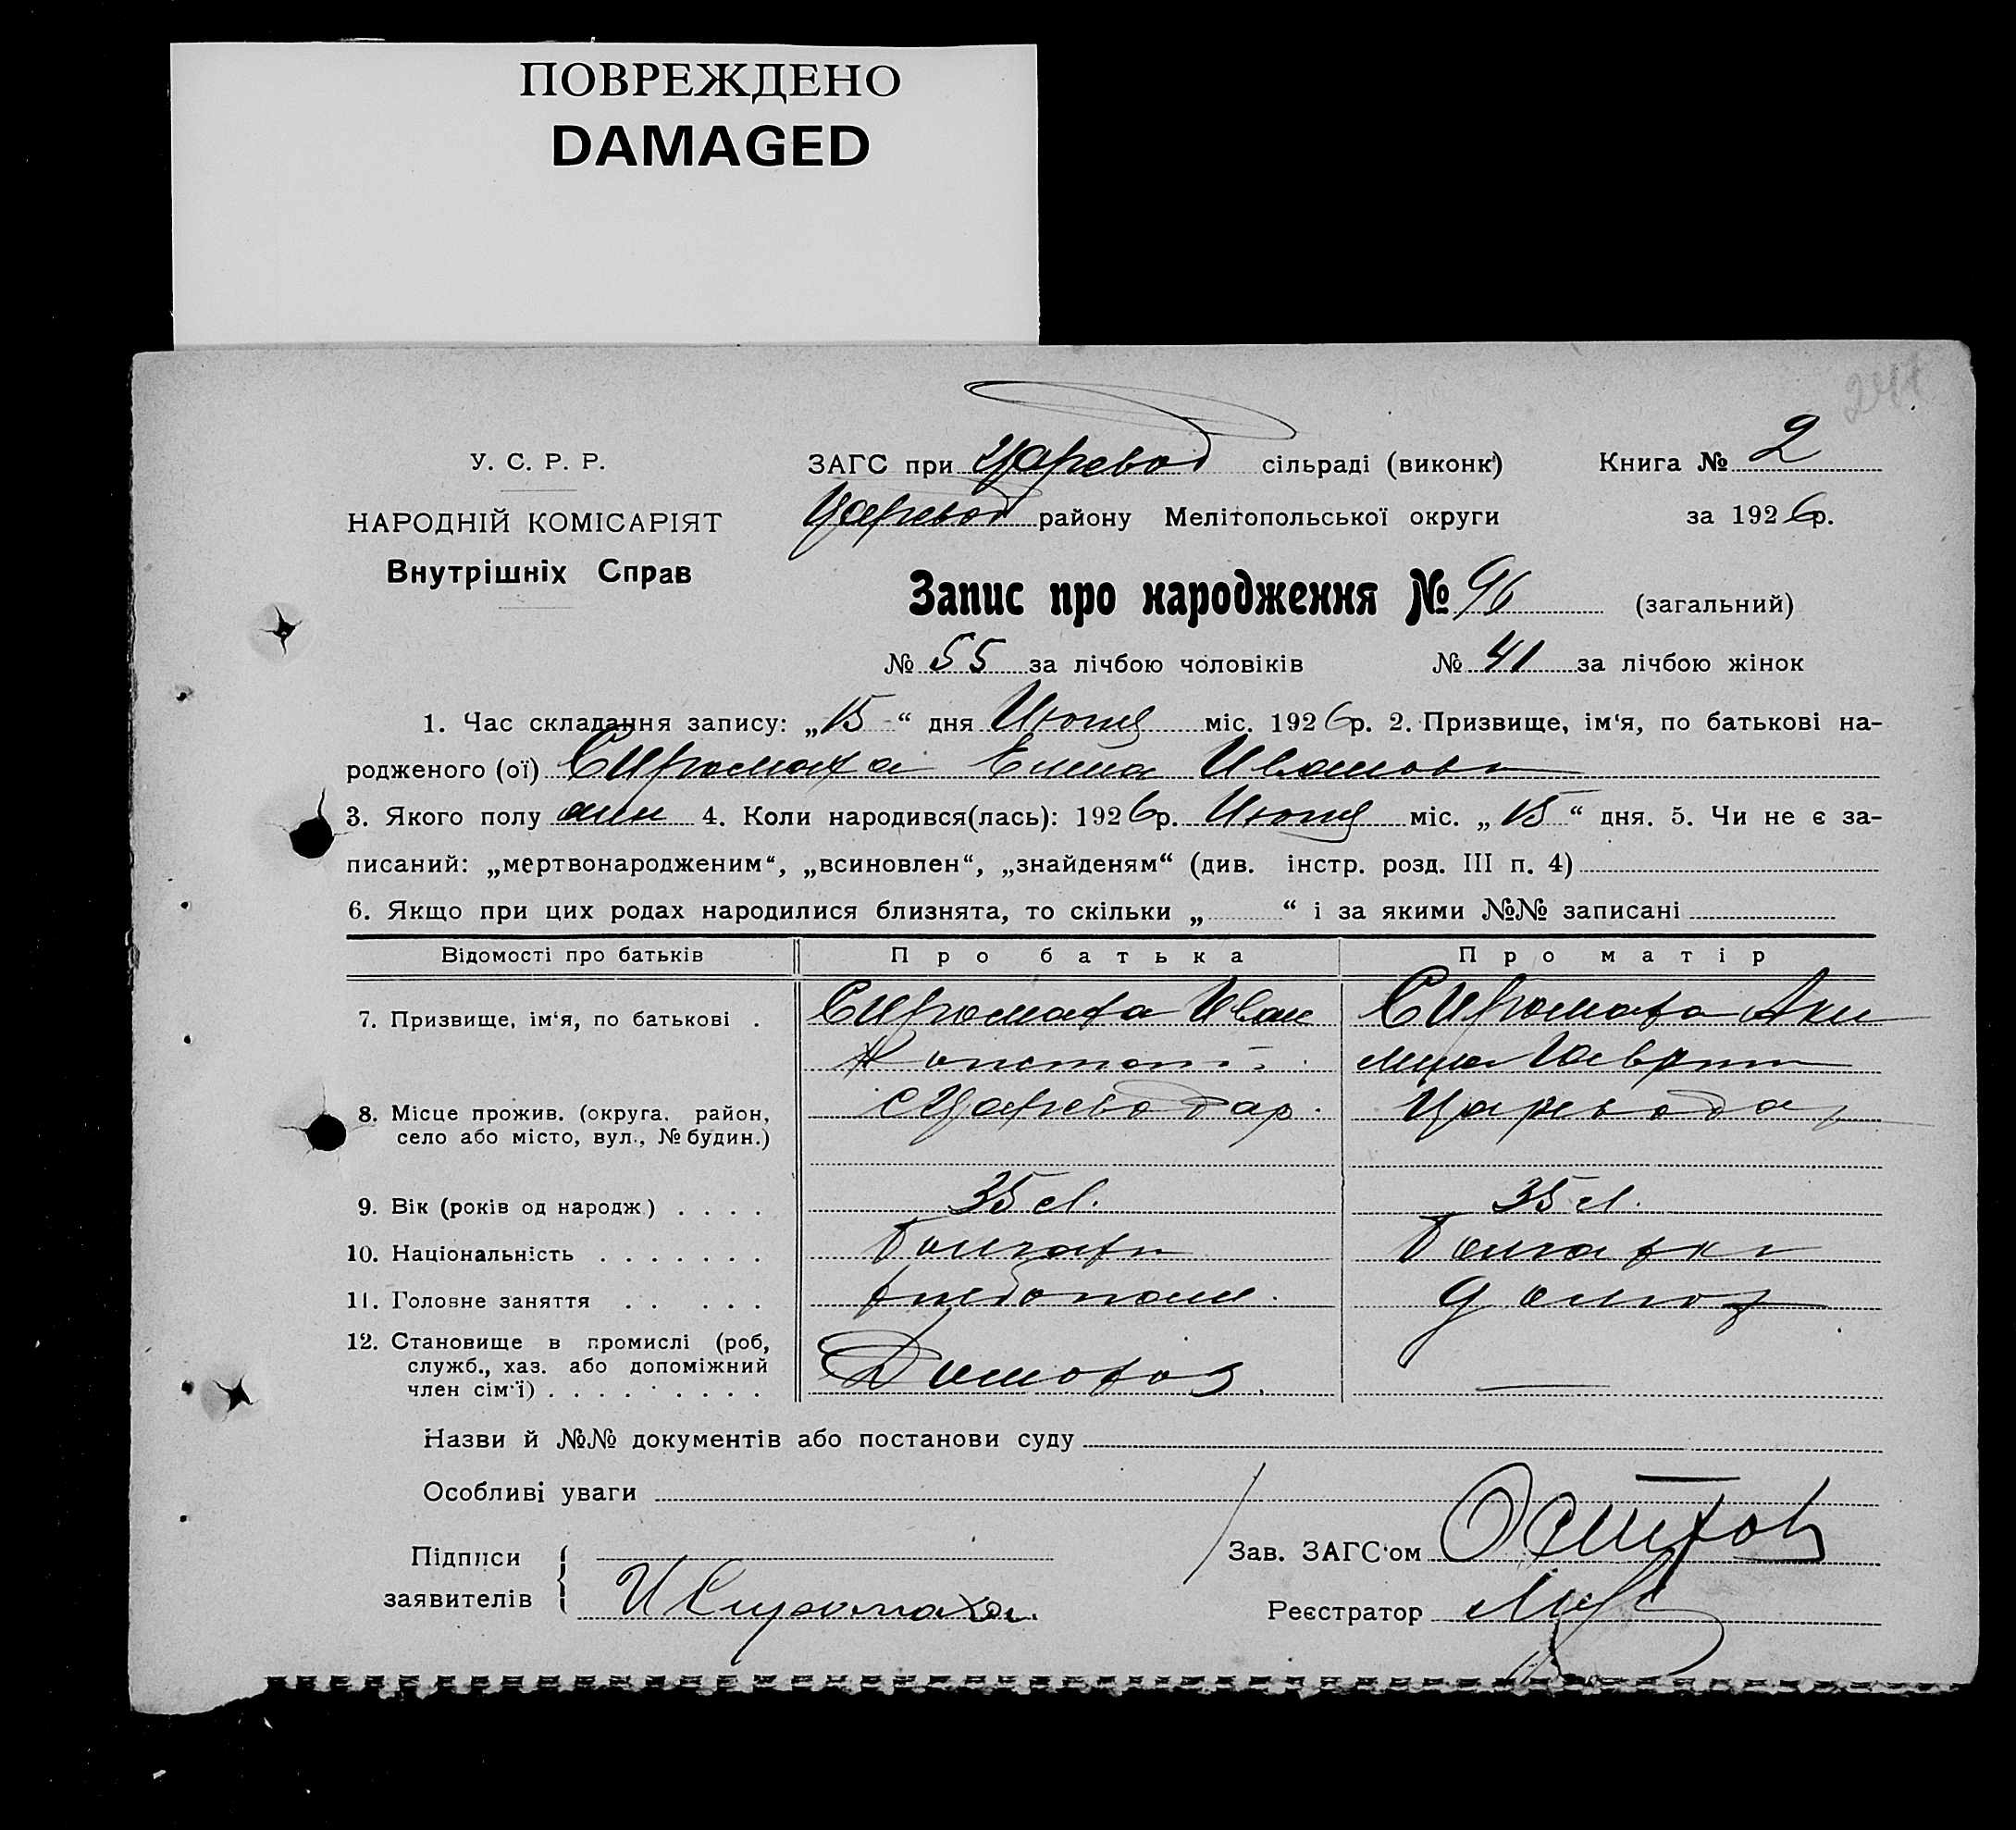 ПОВРЕЖДЕНО
DAMAGED
У. С. Р. Р.
ЗАГС при Царевод сільраді (виконк) Книга № 2
НАРОДНІЙ КОМІСАРІЯТ
Царевод району Мелітопольської округи за 1926 р.
Внутрішніх Справ
Запис про народження № 96 (загальний)
№ 55 за лічбою чоловіків № 41 за лічбою жінок
1. Час складання запису: „15“ дня Июня міс. 1926 р. 2. Призвище, ім'я, по батькові на-
родженого (ої) Сиромаха Иванов
3. Якого полу 4. Коли народився(лась): 1926 р. Июня міс. „15“ дня. 5. Чи не є за-
писаний: „мертвонародженим“, „всиновлен“, „знайденям“ (див. інстр. розд. III п. 4)
6. Якщо при цих родах народилися близнята, то скільки „ “ і за якими №№ записані
Відомості про батьків Про батька Про матір
7. Призвище, ім'я, по батькові . Сиромаха Иван Сиромаха Аки
Констант
8. Місце прожив. (округа, район, с Цареводар. Царевода
село або місто, вул., № будин.)
9. Вік (років од народж) . . . . 35 л. 35 л.
10. Національність . . . . . . . Болгар Болгарк
11. Головне заняття . . . . . хлебопаш. домохоз
12. Становище в промислі (роб,
служб., хаз. або допоміжний
член сім'ї) . . . . . . . . . Домохоз. —
Назви й №№ документів або постанови суду
Особливі уваги
Підписи
Зав. ЗАГС'ом
заявителів { И Сиромаха.
Реєстратор